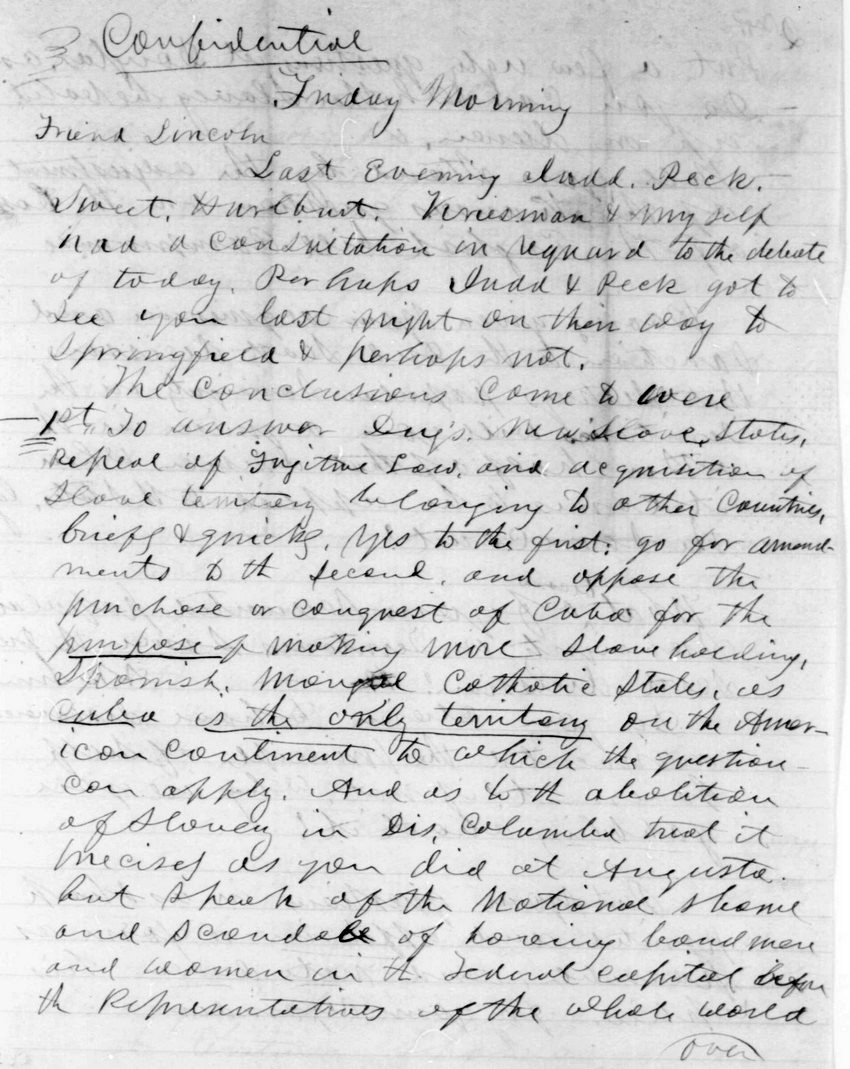 Confidential
Friday Morning
Friend Lincoln
Last Evening Judd. Peck.
Sweet. Hurlburt. Kriesman & my self
had a consultation in reguard to the debate
of today. Perhaps Judd & Peck got to
see you last night on their way to
Springfield & perhaps not.
The conclusions come to were
1st. To answer Dug's. New Slave States,
Repeal of Fugitive Law, and acquisition of
Slave territory belonging to other Countries,
briefly & quickly, Yes to the first; go for amend-
ments to th second, and oppose the
purchase or conquest of Cuba for the
purpose of making more Slave holding,
Spanish, Mongrel Catholic States, as
Cuba is the only territory on the Amer-
ican continent to which the question
can apply. And as to th abolition
of Slavery in Dis. Columba treat it
precisely as you did at Augusta.
but speak of the National shame
and scandale of having bond men
and women in th Federal capital before
th Representatives of the whole world
over